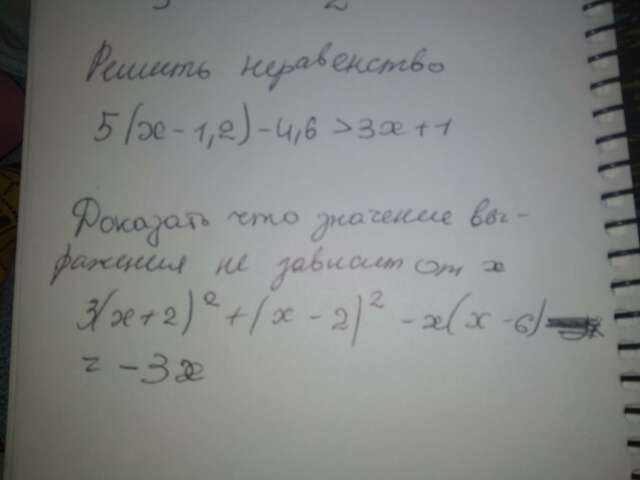 Решить неравенство
5(x-1,2)-4,6>3x+1
Доказать что значение вы-
ражения не зависит от x
3(x+2)² + (x-2)² -x(x-6)
= -3x